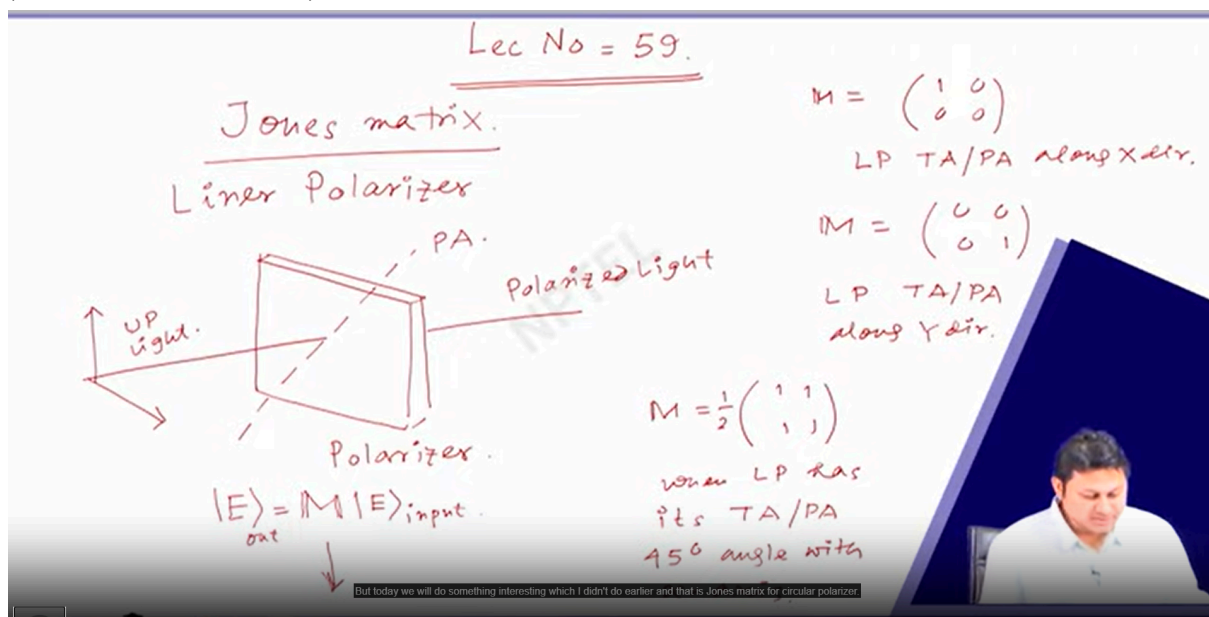 Lec No = 59.
Jones matrix.
Liner Polarizer
PA.
UP
Light.
Polarized Light
Polarizer.
|E⟩out = M |E⟩input.
M = (1 0
0 0)
LP TA/PA along X dir.
M = (0 0
0 1)
LP TA/PA
along Y dir.
M = 1/2 (1 1
1 1)
when LP has
its TA/PA
45° angle with
NPTEL
But today we will do something interesting which I didn't do earlier and that is Jones matrix for circular polarizer.